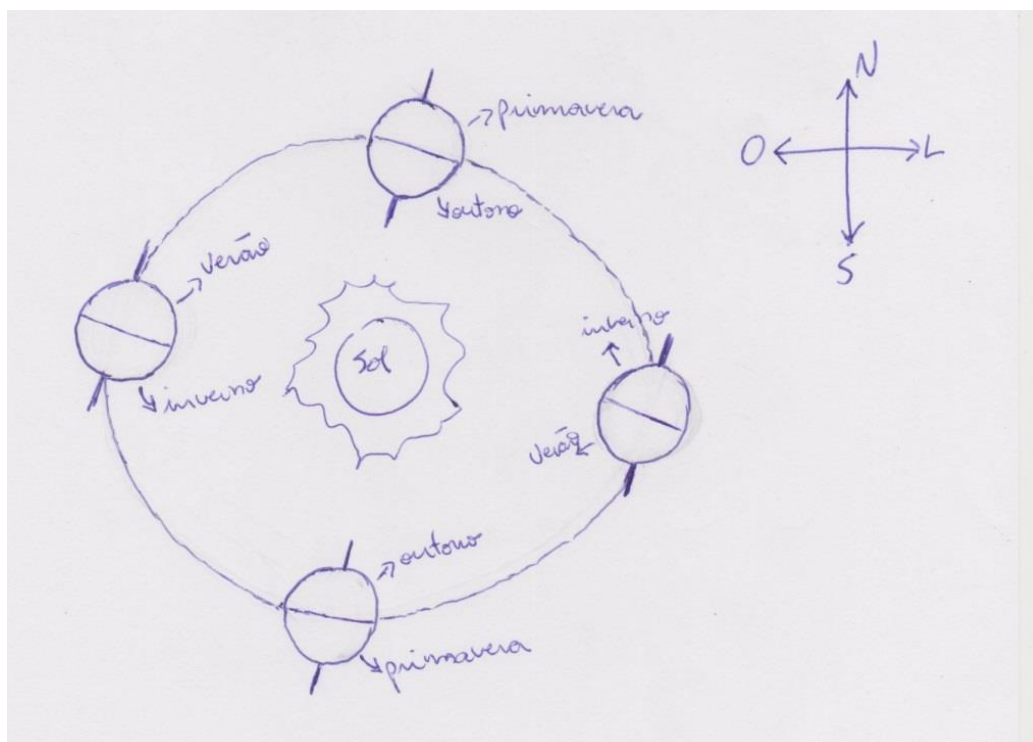 N
primavera
O
L
outono
S
verão
inverno
Sol
inverno
verão
outono
primavera